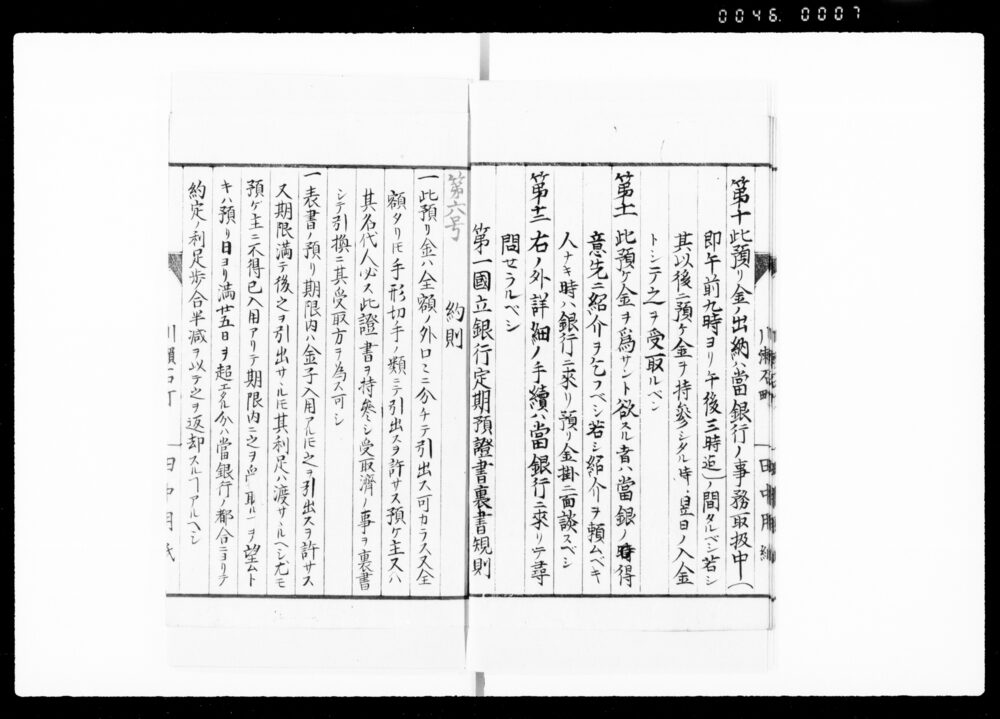 0046. 0007
第十 此預リ金ノ出納ハ當銀行ノ事務取扱中(
即午前九時ヨリ午後三時迠)ノ間タルベシ若シ
其以後ニ預ケ金ヲ持參シタル時ハ翌日ノ入金
トシテ之ヲ受取ルベシ
第十一 此預ケ金ヲ爲サント欲スル者ハ當銀ノ時得
意先ニ紹介ヲ乞フベシ若シ紹介ヲ頼ムベキ
人ナキ時ハ銀行ニ來リ預リ金掛ニ面談スベシ
第十二 右ノ外詳細ノ手續ハ當銀行ニ來リテ尋
問セラルベシ
第一國立銀行定期預證書裏書規則
第六号
約則
一此預リ金ハ全額ノ外口ミニ分チテ引出ス可カラス又全
額タリ𪜈手形切手ノ類ニテ引出スヲ許サス預ケ主又ハ
其名代人必ス此證書ヲ持參シ受取濟ノ事ヲ裏書
シテ引換ニ其受取方ヲ為ス可シ
一表書ノ預リ期限内ハ金子入用アル𪜈之ヲ引出スヲ許サス
又期限満テ後之ヲ引出サヽル𪜈其利足ハ渡サヽルヘシ尤モ
預ケ主ニ不得已入用アリテ期限内ニ之ヲ受取ルヿヲ望ムト
キハ預リ日ヨリ満廿五日ヲ超エタル分ハ當銀行ノ都合ニヨリテ
約定ノ利足歩合半減ヲ以テ之ヲ返却スルヿアルヘシ